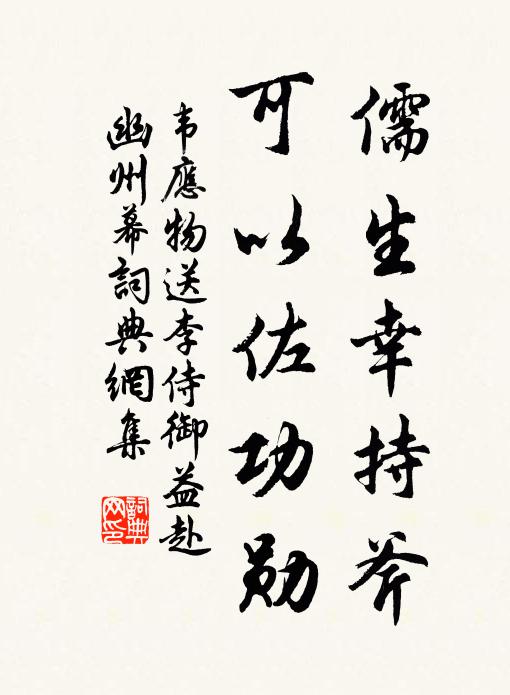 儒生幸持斧
可以佐功勋
韦應物送李侍御益赴
幽州幕詞典網集
詞典
网印